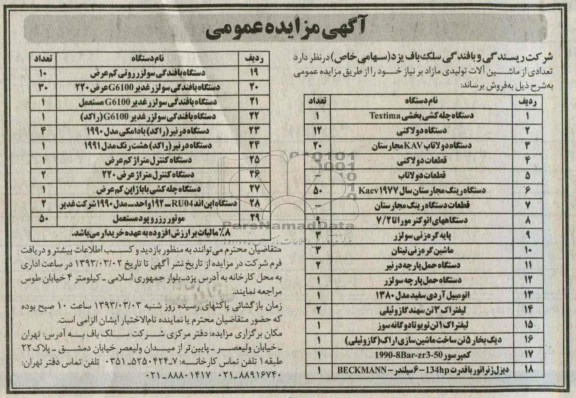 آگهی مزایده عمومی
شرکت ریسندگی و بافندگی سلک باف یزد (سهامی خاص) در نظر دارد
تعدادی از ماشین آلات تولیدی مازاد بر نیاز خود را از طریق مزایده عمومی
به شرح ذیل به فروش برساند:
ردیف نام دستگاه تعداد
۱ دستگاه چله کشی بخشی Textima ۱
۲ دستگاه دولاکنی ۱۲
۳ دستگاه دولاتاب KAV مجارستان ۲۰
۴ قطعات دولاکنی ۱
۵ قطعات دولاتاب -
۶ دستگاه رینگ مجارستان سال ۱۹۷۷ Kaev ۵۰
۷ قطعات دستگاه رینگ مجارستان -
۸ دستگاههای اتوکنر موراتا ۷/۲
۹ پایه گره زنی سولزر ۳
۱۰ ماشین گره زنی تیتان ۳
۱۱ دستگاه حمل پارچه درنیر ۲
۱۲ دستگاه حمل پارچه سولزر ۱
۱۳ اتومبیل آردی سفید مدل ۱۳۸۰ ۱
۱۴ لیفتراک ۳ تن سهند گازوئیلی ۲
۱۵ لیفتراک ۱ تن تویوتا دوگانه سوز ۱
۱۶ دیگ بخار ۵ تن ساخت ماشین سازی اراک (گازوئیلی) ۱
۱۷ کمپرسور 1990-8Bar-zr3-50 ۱
۱۸ دیزل ژنراتور با قدرت 134hp-۶ سیلندر-BECKMANN ۱
ردیف نام دستگاه تعداد
۱۹ دستگاه بافندگی سولزر روتی کم عرض ۱۰
۲۰ دستگاه بافندگی سولزر غدیر G6100 عرض ۲۲۰ ۳۰
۲۱ دستگاه بافندگی سولزر غدیر G6100 مستعمل ۱
۲۲ دستگاه بافندگی سولزر غدیر G6100 (راکد) ۱
۲۳ دستگاه درنیر (راکد) بادامکی مدل ۱۹۹۰ ۴
۲۴ دستگاه درنیر (راکد) هشت رنگ مدل ۱۹۹۱ ۱
۲۵ دستگاه کنترل متراژ کم عرض ۱
۲۶ دستگاه کنترل متراژ عرض ۲۲۰ ۲
۲۷ دستگاه چله کشی با باز کن کم عرض ۱
۲۸ دستگاه اپن اند RU04-۱۹۲ واحد-مدل ۱۹۹۰ شرکت غدیر ۲
۲۹ موتور رزرو پود مستعمل ۵۰
۸٪ مالیات بر ارزش افزوده به عهده خریدار می باشد.
متقاضیان محترم می توانند به منظور بازدید و کسب اطلاعات بیشتر و دریافت
فرم شرکت در مزایده از تاریخ نشر آگهی تا تاریخ ۱۳۹۳/۰۳/۰۲ در ساعت اداری
به محل کارخانه به آدرس یزد-بلوار جمهوری اسلامی - کیلومتر ۴ خیابان طوس
مراجعه نمایند.
زمان بازگشائی پاکتهای رسیده روز شنبه ۱۳۹۳/۰۳/۰۳ ساعت ۱۰ صبح بوده
که حضور متقاضیان محترم یا نماینده تام الاختیار ایشان الزامی است.
مکان برگزاری مزایده: دفتر مرکزی شرکت سلک باف به آدرس: تهران
-خیابان ولیعصر - پایین تر از میدان ولیعصر خیابان دمشق - پلاک ۲۲
طبقه ۱ تلفن تماس کارخانه: ۷-۵۲۵۰۴۲۴-۰۳۵۱ تلفن تماس دفتر تهران:
۰۲۱-۸۸۹۱۶۷۴۰ ۰۲۱-۸۸۸۰۱۴۱۷
ParsNamadData